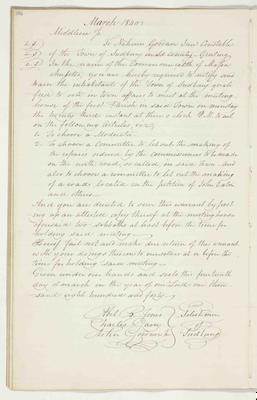 March 1840
Middlesex ss
To Nahum Goodnow Constable
of the Town of Sudbury in said County Greeting
In the name of the Commonwealth of Massa
chusetts, you are hereby required to notify and
warn the inhabitants of the Town of Sudbury quali
fied to vote in Town affairs to meet at the meeting
house of the first Parish in said Town on monday
the twenty third instant at three o'clock P.M. to act
on the following Articles, viz
1. To choose a Moderator
2. To choose a Committee to let out the making of
the repairs ordered by the commissioners to be made
on the north road, so called, in said town. And
also to choose a committee to let out the making
of a road, located on the petition of John Eaton
and others
And you are directed to serve this warrant by post
ing up an attested copy thereof at the meetinghouse
aforesaid two sabbaths at least before the time for
holding said meeting
Hereof fail not and make due return of this warrant
with your doings thereon to ourselves at or before the
time for holding said meeting
Given under our hands and seals this fourteenth
day of march in the year of our Lord one thou
sand eight hundred and forty
Selectmen
Charles
of
Sudbury